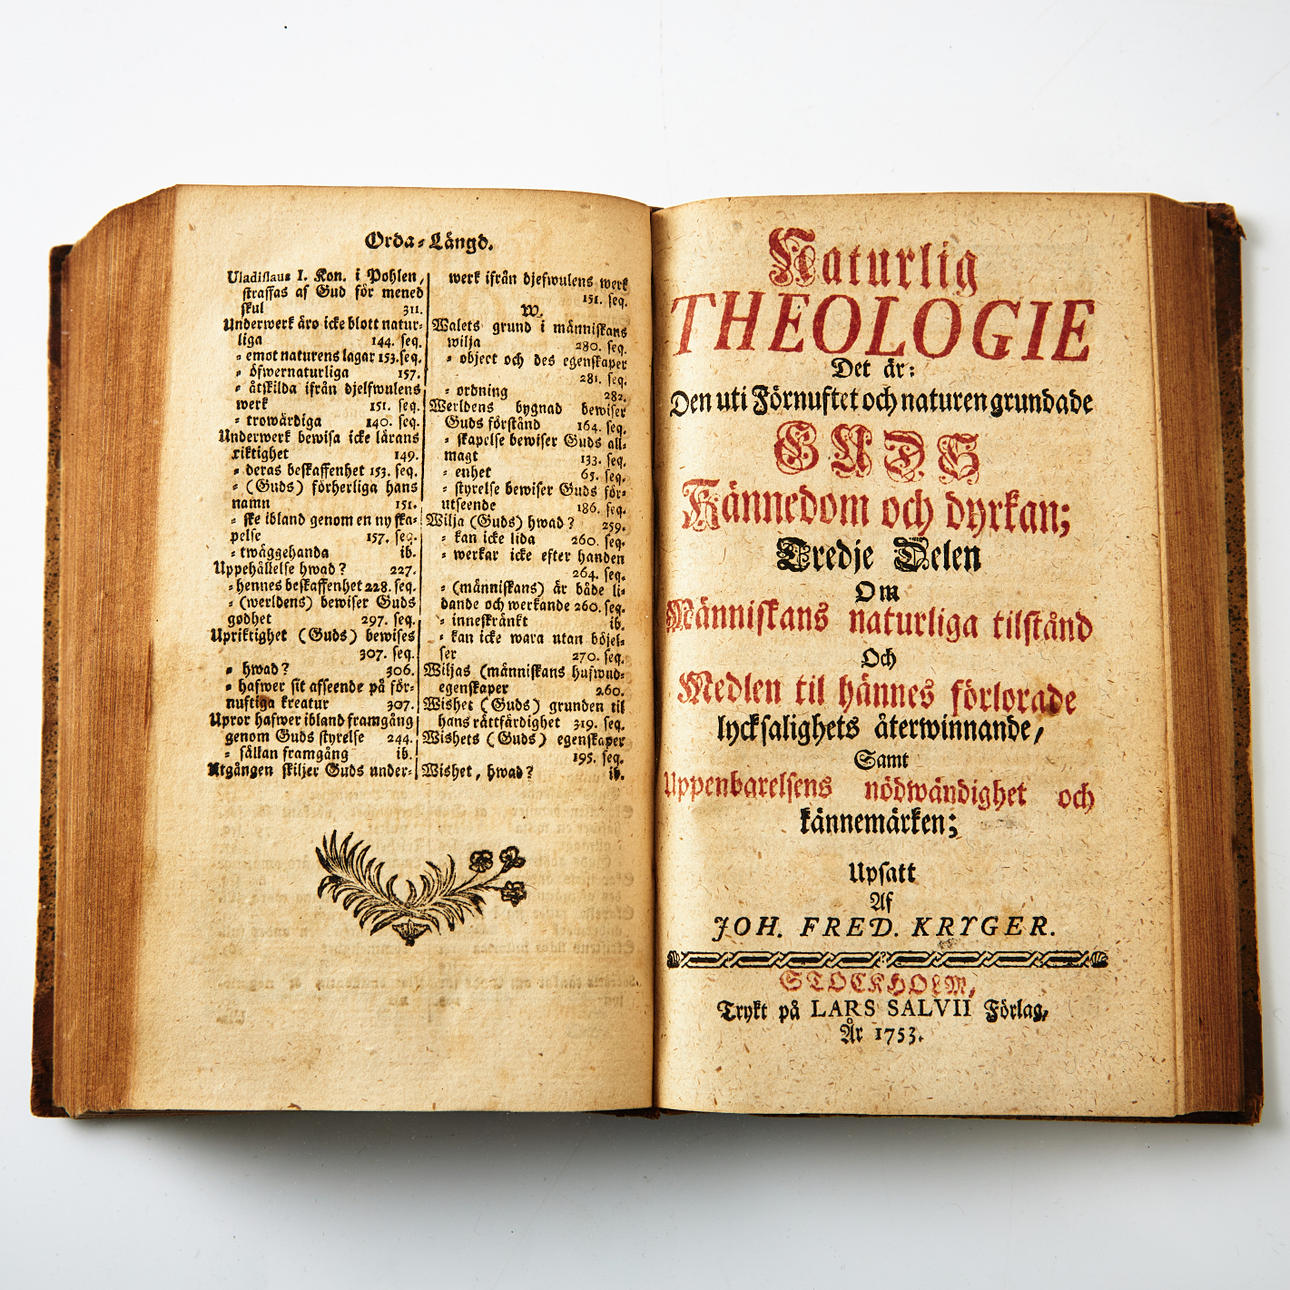 Orda-Längd.
Uladislaus I. Kon. i Pohlen,
straffas af Gud för mened
skul 311.
Underwerk äro icke blott natur-
liga 144. seq.
- emot naturens lagar 153. seq.
- öfwernaturliga 157.
- åtskilda ifrån djelfwulens
werk 151. seq.
- trowärdiga 140. seq.
Underwerk bewisa icke lärans
riktighet 149.
- deras beskaffenhet 153. seq.
- (Guds) förherliga hans
namn 151.
- ske ibland genom en ny ska-
pelse 157. seq.
- twäggehanda ib.
Uppehållelse hwad? 227.
- hennes beskaffenhet 228. seq.
- (werldens) bewiser Guds
godhet 297. seq.
Upriktighet (Guds) bewises
307. seq.
- hwad? 306.
- hafwer sit afseende på för-
nuftiga kreatur 307.
Upror hafwer ibland framgång
genom Guds styrelse 244.
- sällan framgång ib.
Utgången skiljer Guds under-
werk ifrån djefwulens werk
151. seq.
W.
Walets grund i människans
wilja 280. seq.
- object och des egenskaper
281. seq.
- ordning 282.
Werldens bygnad bewiser
Guds förstånd 164. seq.
- skapelse bewiser Guds all-
magt 133. seq.
- enhet 65. seq.
- styrelse bewiser Guds för-
utseende 186. seq.
Wilja (Guds) hwad? 259.
- kan icke lida 260. seq.
- werkar icke efter handen
264. seq.
- (människans) är både li-
dande och werkande 260. seq.
- inneskränkt ib.
- kan icke wara utan böjel-
ser 270. seq.
Wiljas (människans hufwud-
egenskaper 260.
Wishet (Guds) grunden til
hans rättfärdighet 319. seq.
Wishets (Guds) egenskaper
195. seq.
Wishet, hwad? ib.
Naturlig
THEOLOGIE
Det är:
Den uti Förnuftet och naturen grundade
GUDS
Kännedom och dyrkan;
Tredje Delen
Om
Människans naturliga tilstånd
Och
Medlen til hännes förlorade
lycksalighets återwinnande,
Samt
Uppenbarelsens nödwändighet och
kännemärken;
Upsatt
Af
JOH. FRED. KRYGER.
STOCKHOLM,
Trykt på LARS SALVII Förlag,
År 1753.